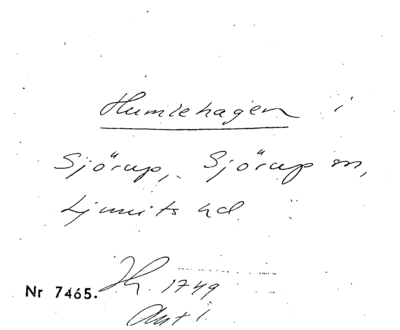 Humlehagen i
Sjörup, Sjörup sn,
Ljunits hd
Nr 7465. Jb. 1749
Ant i